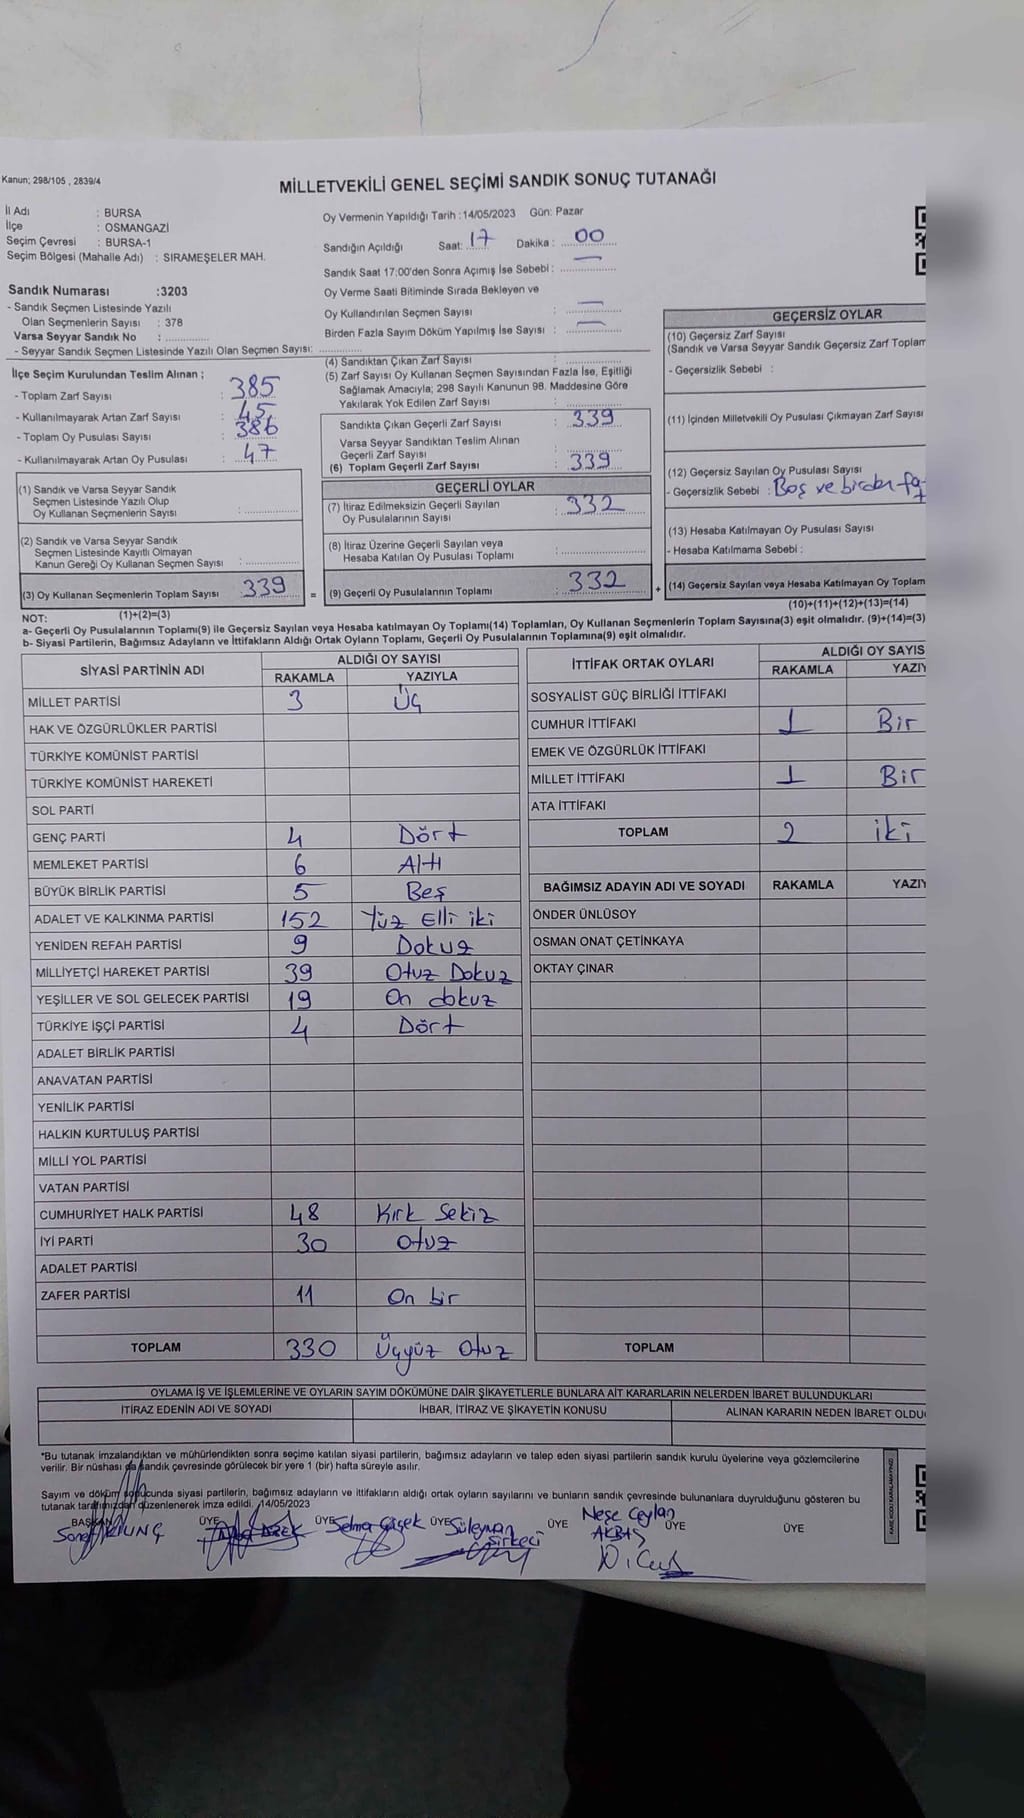 Kanun; 298/105 , 2839/4
MİLLETVEKİLİ GENEL SEÇİMİ SANDIK SONUÇ TUTANAĞI
İl Adı : BURSA
İlçe : OSMANGAZİ
Seçim Çevresi : BURSA-1
Seçim Bölgesi (Mahalle Adı) : SIRAMEŞELER MAH.
Sandık Numarası :3203
- Sandık Seçmen Listesinde Yazılı
Olan Seçmenlerin Sayısı : 378
Varsa Seyyar Sandık No :
- Seyyar Sandık Seçmen Listesinde Yazılı Olan Seçmen Sayısı:
İlçe Seçim Kurulundan Teslim Alınan ;
- Toplam Zarf Sayısı : 385
- Kullanılmayarak Artan Zarf Sayısı : 45
- Toplam Oy Pusulası Sayısı : 386
- Kullanılmayarak Artan Oy Pusulası : 47
(1) Sandık ve Varsa Seyyar Sandık
Seçmen Listesinde Yazılı Olup
Oy Kullanan Seçmenlerin Sayısı :
(2) Sandık ve Varsa Seyyar Sandık
Seçmen Listesinde Kayıtlı Olmayan
Kanun Gereği Oy Kullanan Seçmen Sayısı :
(3) Oy Kullanan Seçmenlerin Toplam Sayısı : 339
(1)+(2)=(3)
Oy Vermenin Yapıldığı Tarih :14/05/2023 Gün: Pazar
Sandığın Açıldığı Saat: 17 Dakika : 00
Sandık Saat 17:00'den Sonra Açımış İse Sebebi : —
Oy Verme Saati Bitiminde Sırada Bekleyen ve
Oy Kullandırılan Seçmen Sayısı : —
Birden Fazla Sayım Döküm Yapılmış İse Sayısı : —
(4) Sandıktan Çıkan Zarf Sayısı :
(5) Zarf Sayısı Oy Kullanan Seçmen Sayısından Fazla İse, Eşitliği
Sağlamak Amacıyla; 298 Sayılı Kanunun 98. Maddesine Göre
Yakılarak Yok Edilen Zarf Sayısı :
Sandıkta Çıkan Geçerli Zarf Sayısı : 339
Varsa Seyyar Sandıktan Teslim Alınan
Geçerli Zarf Sayısı :
(6) Toplam Geçerli Zarf Sayısı : 339
GEÇERLİ OYLAR
(7) İtiraz Edilmeksizin Geçerli Sayılan
Oy Pusulalarının Sayısı : 332
(8) İtiraz Üzerine Geçerli Sayılan veya
Hesaba Katılan Oy Pusulası Toplamı :
= (9) Geçerli Oy Pusulalarının Toplamı : 332 +
GEÇERSİZ OYLAR
(10) Geçersiz Zarf Sayısı
(Sandık ve Varsa Seyyar Sandık Geçersiz Zarf Toplam
- Geçersizlik Sebebi :
(11) İçinden Milletvekili Oy Pusulası Çıkmayan Zarf Sayısı
(12) Geçersiz Sayılan Oy Pusulası Sayısı
- Geçersizlik Sebebi : Boş ve birden faz
(13) Hesaba Katılmayan Oy Pusulası Sayısı
- Hesaba Katılmama Sebebi :
(14) Geçersiz Sayılan veya Hesaba Katılmayan Oy Toplam
(10)+(11)+(12)+(13)=(14)
NOT:
a- Geçerli Oy Pusulalarının Toplamı(9) ile Geçersiz Sayılan veya Hesaba katılmayan Oy Toplamı(14) Toplamları, Oy Kullanan Seçmenlerin Toplam Sayısına(3) eşit olmalıdır. (9)+(14)=(3)
b- Siyasi Partilerin, Bağımsız Adayların ve İttifakların Aldığı Ortak Oyların Toplamı, Geçerli Oy Pusulalarının Toplamına(9) eşit olmalıdır.
SİYASİ PARTİNİN ADI ALDIĞI OY SAYISI
RAKAMLA YAZIYLA
MİLLET PARTİSİ 3 Üç
HAK VE ÖZGÜRLÜKLER PARTİSİ
TÜRKİYE KOMÜNİST PARTİSİ
TÜRKİYE KOMÜNİST HAREKETİ
SOL PARTİ
GENÇ PARTİ 4 Dört
MEMLEKET PARTİSİ 6 Altı
BÜYÜK BİRLİK PARTİSİ 5 Beş
ADALET VE KALKINMA PARTİSİ 152 Yüz Elli iki
YENİDEN REFAH PARTİSİ 9 Dokuz
MİLLİYETÇİ HAREKET PARTİSİ 39 Otuz Dokuz
YEŞİLLER VE SOL GELECEK PARTİSİ 19 On dokuz
TÜRKİYE İŞÇİ PARTİSİ 4 Dört
ADALET BİRLİK PARTİSİ
ANAVATAN PARTİSİ
YENİLİK PARTİSİ
HALKIN KURTULUŞ PARTİSİ
MİLLİ YOL PARTİSİ
VATAN PARTİSİ
CUMHURİYET HALK PARTİSİ 48 Kırk Sekiz
İYİ PARTİ 30 Otuz
ADALET PARTİSİ
ZAFER PARTİSİ 11 On bir
TOPLAM 330 Üçyüz Otuz
İTTİFAK ORTAK OYLARI ALDIĞI OY SAYIS
RAKAMLA YAZIY
SOSYALİST GÜÇ BİRLİĞİ İTTİFAKI
CUMHUR İTTİFAKI 1 Bir
EMEK VE ÖZGÜRLÜK İTTİFAKI
MİLLET İTTİFAKI 1 Bir
ATA İTTİFAKI
TOPLAM 2 iki
BAĞIMSIZ ADAYIN ADI VE SOYADI RAKAMLA YAZIY
ÖNDER ÜNLÜSOY
OSMAN ONAT ÇETİNKAYA
OKTAY ÇINAR
TOPLAM
OYLAMA İŞ VE İŞLEMLERİNE VE OYLARIN SAYIM DÖKÜMÜNE DAİR ŞİKAYETLERLE BUNLARA AİT KARARLARIN NELERDEN İBARET BULUNDUKLARI
İTİRAZ EDENİN ADI VE SOYADI İHBAR, İTİRAZ VE ŞİKAYETİN KONUSU ALINAN KARARIN NEDEN İBARET OLDU
"Bu tutanak imzalandıktan ve mühürlendikten sonra seçime katılan siyasi partilerin, bağımsız adayların ve talep eden siyasi partilerin sandık kurulu üyelerine veya gözlemcilerine
verilir. Bir nüshası da sandık çevresinde görülecek bir yere 1 (bir) hafta süreyle asılır.
Sayım ve döküm sonucunda siyasi partilerin, bağımsız adayların ve ittifakların aldığı ortak oyların sayılarını ve bunların sandık çevresinde bulunanlara duyrulduğunu gösteren bu
tutanak tarafımızdan düzenlenerek imza edildi. 14/05/2023
BAŞKAN ÜYE ÜYE ÜYE ÜYE ÜYE ÜYE
KILINÇ
Selma Çiçek
Süleyman
Sirkeci
Neşe Ceylan
AKBAŞ